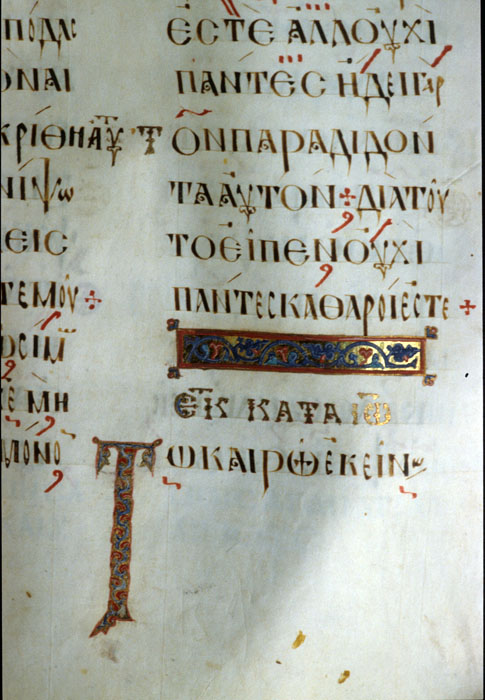 ΠΟΔΑС
ΟΝΑΙ
ΚΡΙΘΗ ΑΥΤ
ΝΙΨΩ
ΕΙС
ΤΕΜΟΥ
СΙΜ
Ε ΜΗ
ΜΟΝΟ
ΕСΤΕ ΑΛΛΟΥΧΙ
ΠΑΝΤΕС ΗΔΕΙ ΓΑΡ
ΤΟΝ ΠΑΡΑΔΙΔΟΝ
ΤΑ ΑΥΤΟΝ + ΔΙΑ ΤΟΥ
ΤΟ ΕΙΠΕΝ ΟΥΧΙ
ΠΑΝΤΕС ΚΑΘΑΡΟΙ ΕСΤΕ +
ΕΚ ΚΑΤΑ ΙΩ
ΤΩ ΚΑΙΡΩ ΕΚΕΙΝΩ